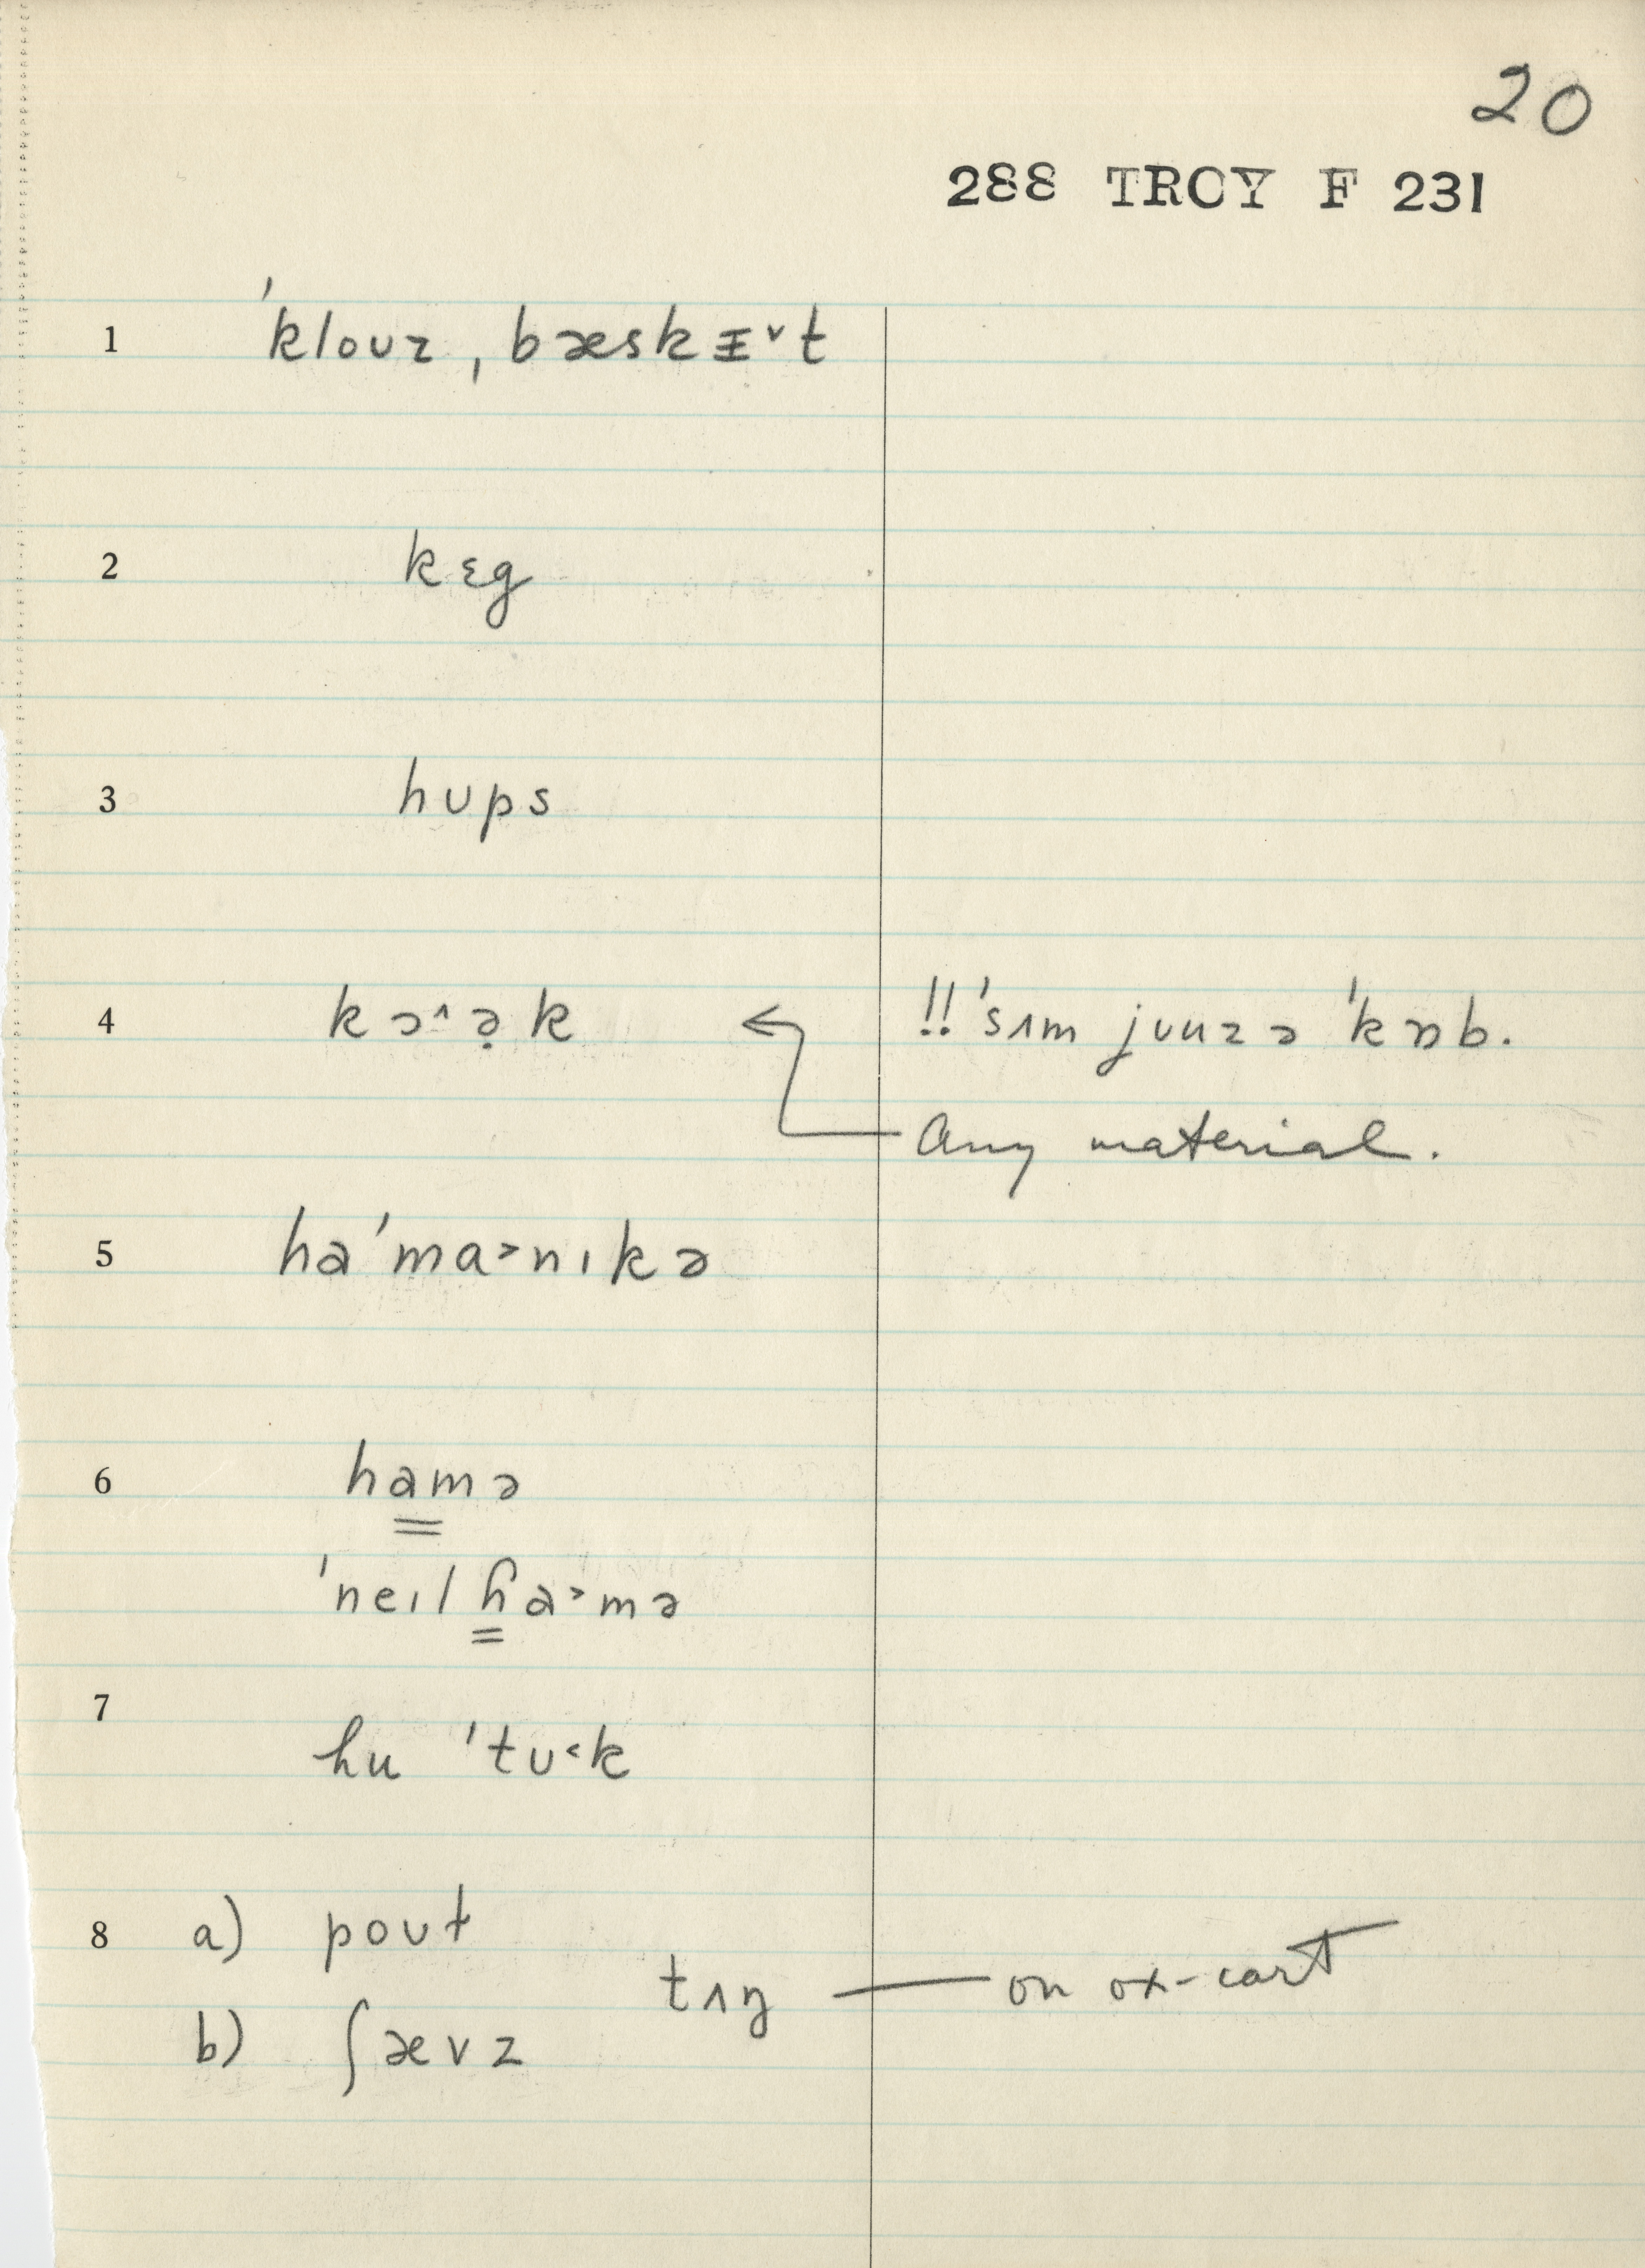 20
288 TROY F 231
1 ˈkloʊz ˌbæskɪ̵ˇt
2 kɛg
3 hʊps
4 kɔ^ə̣k ← !! ˈsʌm juuz ə ˈkɒb.
Any material.
5 haˈma>nɪkə
6 hamə
ˈneɪl ɦa>mə
7 hu ˈtʊ<k
8 a) poʊt
tʌŋ — on ox-cart
b) ʃævz